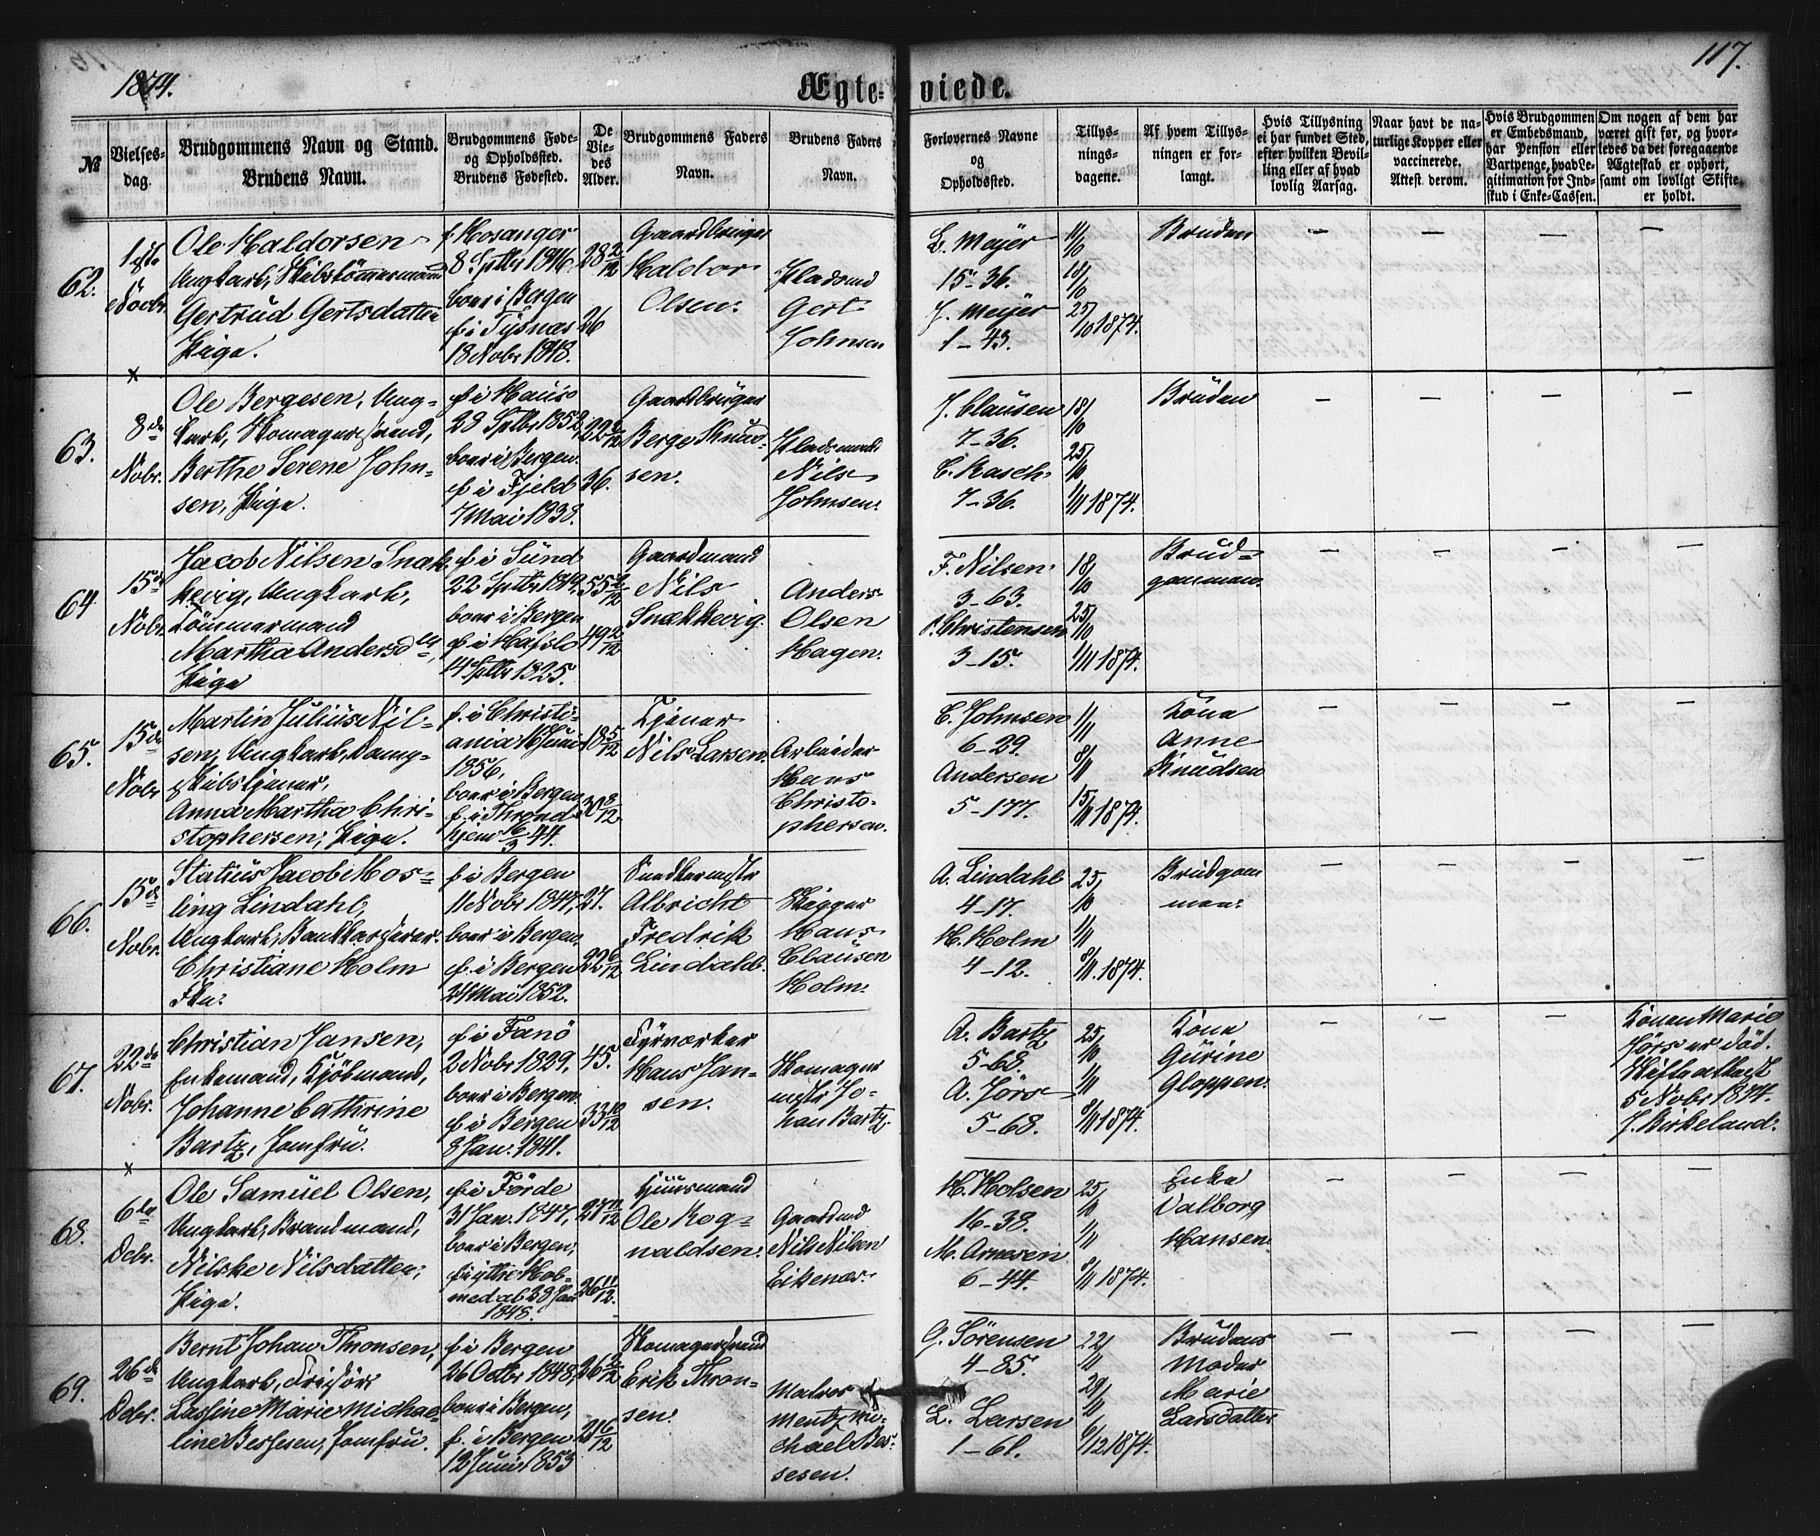 1874.
117.
Ægte-viede.
№
Vielses-
dag.
Brudgommens Navn og Stand.
Brudens Navn.
Brudgommens Føde-
og Opholdssted.
Brudens Fødested.
De
Vie-
des
Alder.
Brudgommens Faders
Navn.
Brudens Faders
Navn.
Forlovernes Navne
og
Opholdssted.
Tillys-
nings-
dagene.
Af hvem Tillys-
ningen er for-
langt.
Hvis Tillysning
ei har fundet Sted,
efter hvilken Bevil-
ling eller af hvad
lovlig Aarsag.
Naar havt de na-
turlige Kopper eller
vaccinerede.
Attest derom.
Hvis Brudgommen
er Embedsmand,
har Pension eller
Vartpenge, hvad Le-
gitimation for Ind-
skud i Enke-Cassen.
Om nogen af dem har
været gift før, og hvor-
ledes da det foregaaende
Ægteskab er ophørt,
samt om lovligt Skifte
er holdt.
62.
1ste
Novbr.
Ole Haldorsen
Ungkarl, Skibstömmermand
Gertrud Gertsdatter
Pige.
f. Hosanger
8 Septbr 1846.
boer i Bergen
f. i Tysnæs
18 Novbr 1848.
28 2/12
26
Gaardbruger
Haldor
Olsen.
Pladsmd
Gert
Johnsen
L. Meyer
15-36.
J. Meyer
1-43.
11/10
18/10
25/10 1874.
Bruden
— — — —
63.
8de
Nobr.
Ole Bergesen, Ung-
karl, Skomagersvend,
Berthe Serene John-
sen, Pige.
f. i Haus
28 Septbr 1852,
boer i Bergen.
f. i Fjeld
7 Mai 1838.
22 2/12
36.
Gaardbruger
Berge Knud-
sen.
Pladsmand
Nils
Johnsen.
J. Clausen
7-36.
C. Rasch
7-36.
18/10
25/10
1/11 1874.
Bruden
— — — —
64
15de
Nobr.
Jacob Nilsen Snæk-
kevig, Ungkarl,
Tömmermand
Martha Andersd
Pige
f. i Sund
22 Septbr 1819,
boer i Bergen
f. i Hafslo
14 Septbr 1825.
55 2/12
49 2/12
Gaardmand
Nils
Snækkevig.
Anders
Olsen
Hagen.
F. Nilsen
3-63.
Christensen
3-15.
18/10
25/10
1/11 1874.
Brud-
gommen
— — — —
65.
15de
Nobr
Martin Julius Nil-
sen, Ungkarl, Damp-
skibstjener,
Anna Martha Chri-
stophersen, Pige.
f. i Christi-
ania 16 Juni
1856,
boer i Bergen
f. i Thrond-
hjem 16/3 44.
18 5/12
30 8/12
Tjener
Nils Larsen.
Arbeider
Hans
Christo-
phersen.
C. Johnsen
6-29.
Andersen
5-177.
1/11
8/11
15/11 1874.
Kone
Anne
Knudsen
— — — —
66.
15de
Nobr.
Statius Jacob Mos-
ling Lindahl,
Ungkarl, Bankkasserer
Christiane Holm
Frk.
f. i Bergen
11 Nobr 1847,
boer i Bergen.
f. i Bergen
24 Mai 1852.
27.
22 6/12
Albricht
Fredrik
Lindahl.
Skipper
Hans
Clausen
Holm.
A. Lindahl
4-17.
H. Holm
4-12.
25/10
1/11
8/11 1874.
Brudgom-
men.
— — — —
67.
22de
Nobr.
Christian Jansen,
Enkemand, Kjöbmand,
Johanne Cathrine
Bartz, Jomfru.
f. i Fanö
2 Nobr 1829,
boer i Bergen.
f. i Bergen
8 Jan. 1841.
45.
33 10/12
Fyrværker
Hans Jan-
sen.
Skomager-
mstr Jo-
han Bartz.
A. Bartz
5-68.
A. Jörs
5-68.
25/10
1/11
8/11 1874.
Kone
Gurine
Gloppen.
— — —
Konen Marie
Jörs er död.
Skifteattest
5 Nobr 1874.
J. Birkeland.
68.
6te
Debr.
Ole Samuel Olsen,
Ungkarl, Brandmand,
Nilske Nilsdatter,
Pige.
f. i Förde
31 Jan. 1847,
boer i Bergen,
f. i ytre Hol-
medal 28 Jan
1848.
27 10/12
26 11/12.
Huusmand
Ole Rog-
naldsen.
Gaardmd
Nils Nilsen
Eikenæs.
H. Holsen
16-38.
M. Arnesen
6-44.
25/10
1/11
8/11 1874.
Enke
Valborg
Hansen.
— — — —
69.
26de
Debr.
Bernt Johan Thronsen,
Ungkarl, Frisör
Lassine Marie Michae-
line Bessesen, Jomfru.
f. i Bergen
26 Octbr 1848,
boer i Bergen,
f. i Bergen
12 Juni 1853
26 2/12
21 6/12
Skomagersvend
Erik Thron-
sen.
Maler
Mentz Mi-
chael Bes-
sesen.
G. Sörensen
4-85.
L. Larsen
1-61.
22/11
29/11
6/12 1874.
Brudens
Moder
Marie
Larsdatter
— — — —